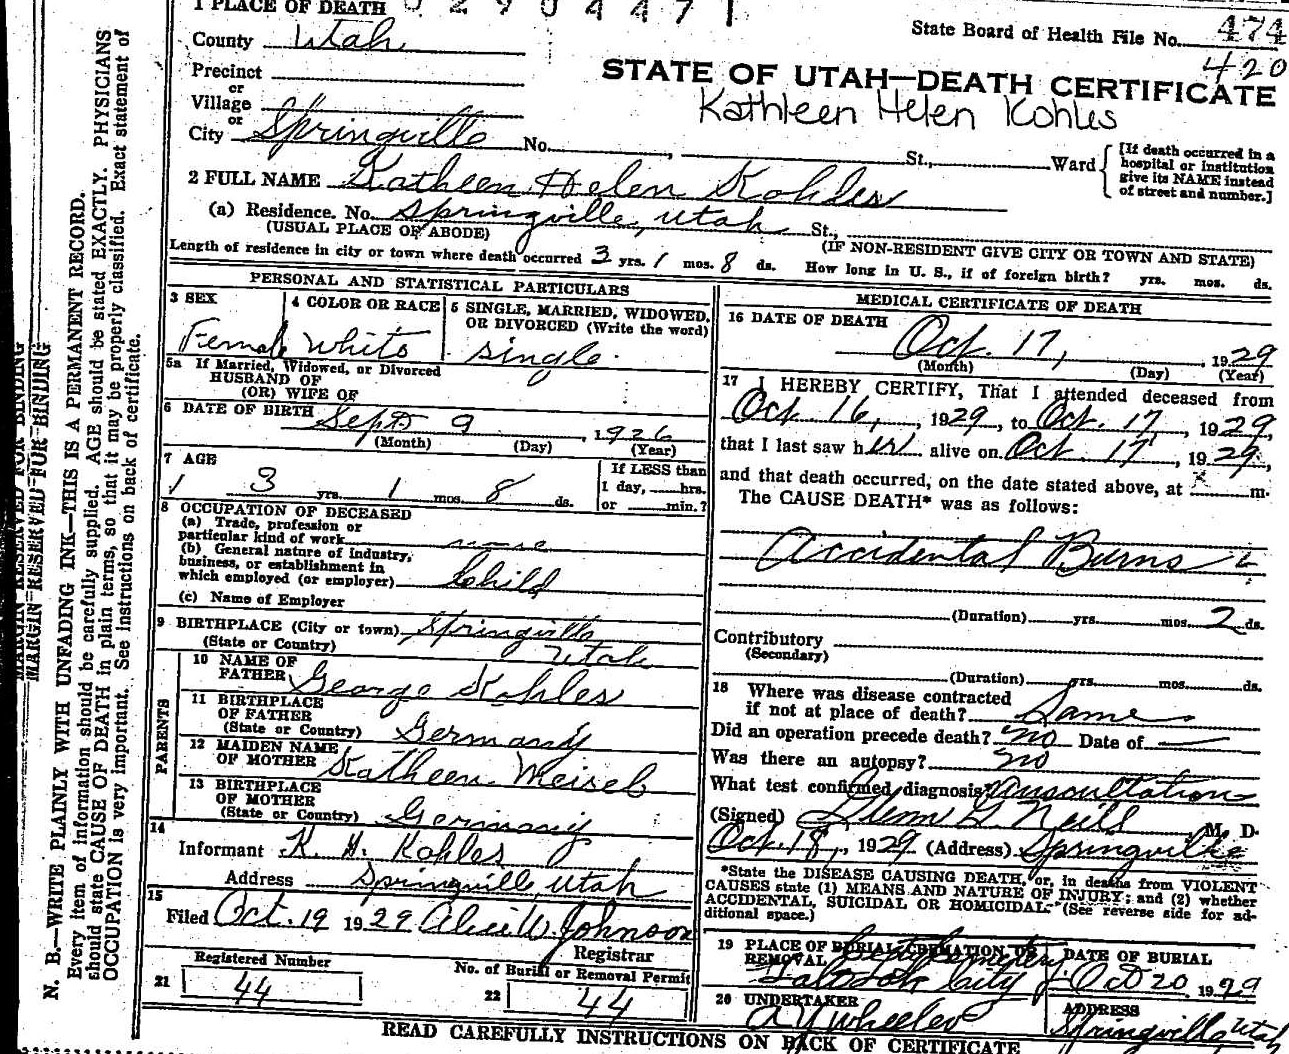 1 PLACE OF DEATH 0 2 9 0 4 4 7 1
State Board of Health File No. 474
420
County Utah
Precinct
or
Village
or
City Springville No. , St., Ward
[If death occurred in a
hospital or institution
give its NAME instead
of street and number.]
STATE OF UTAH—DEATH CERTIFICATE
Kathleen Helen Kohles
2 FULL NAME Katheen Helen Kohles
(a) Residence. No. Springville, Utah St.,
(USUAL PLACE OF ABODE) (IF NON-RESIDENT GIVE CITY OR TOWN AND STATE)
Length of residence in city or town where death occurred 3 yrs. 1 mos. 8 ds. How long in U. S., if of foreign birth? yrs. mos. ds.
PERSONAL AND STATISTICAL PARTICULARS
3 SEX 4 COLOR OR RACE 5 SINGLE, MARRIED, WIDOWED,
OR DIVORCED (Write the word)
Female White Single
5a If Married, Widowed, or Divorced
HUSBAND OF
(OR) WIFE OF
6 DATE OF BIRTH Sept 9, 1926
(Month) (Day) (Year)
7 AGE If LESS than
1 day, hrs.
3 yrs. 1 mos. 8 ds. or min.?
8 OCCUPATION OF DECEASED
(a) Trade, profession or
particular kind of work none
(b) General nature of industry,
business, or establishment in
which employed (or employer) Child
(c) Name of Employer
9 BIRTHPLACE (City or town) Springville
(State or Country) Utah
PARENTS
10 NAME OF
FATHER George Kohles
11 BIRTHPLACE
OF FATHER
(State or Country) Germany
12 MAIDEN NAME
OF MOTHER Katheen Meisel
13 BIRTHPLACE
OF MOTHER
(State or Country) Germany
14
Informant K. H. Kohles
Address Springville, Utah
15
Filed Oct. 19 1929 Alice W. Johnson
Registrar
Registered Number No. of Burial or Removal Permit
21 44 22 44
MEDICAL CERTIFICATE OF DEATH
16 DATE OF DEATH
Oct. 17, 1929
(Month) (Day) (Year)
17 I HEREBY CERTIFY, That I attended deceased from
Oct. 16, 1929, to Oct. 17, 1929,
that I last saw her alive on Oct. 17, 1929,
and that death occurred, on the date stated above, at m.
The CAUSE DEATH* was as follows:
Accidental Burns
(Duration) yrs. mos. 2 ds.
Contributory
(Secondary)
(Duration) yrs. mos. ds.
18 Where was disease contracted
if not at place of death? Same
Did an operation precede death? no Date of
Was there an autopsy? no
What test confirmed diagnosis? Auscultation
(Signed) Glenn Neill, M. D.
Oct. 18, 1929 (Address) Springville
*State the DISEASE CAUSING DEATH, or, in deaths from VIOLENT
CAUSES state (1) MEANS AND NATURE OF INJURY; and (2) whether
ACCIDENTAL, SUICIDAL OR HOMICIDAL. (See reverse side for ad-
ditional space.)
19 PLACE OF BURIAL, CREMATION OR
REMOVAL City DATE OF BURIAL
Oct 20 1929
20 UNDERTAKER ADDRESS
A Y Wheeler Springville, Utah
READ CAREFULLY INSTRUCTIONS ON BACK OF CERTIFICATE
MARGIN RESERVED FOR BINDING
MARGIN RESERVED FOR BINDING
N. B.—WRITE PLAINLY WITH UNFADING INK—THIS IS A PERMANENT RECORD.
Every item of information should be carefully supplied. AGE should be stated EXACTLY. PHYSICIANS
should state CAUSE OF DEATH in plain terms, so that it may be properly classified. Exact statement of
OCCUPATION is very important. See instructions on back of certificate.